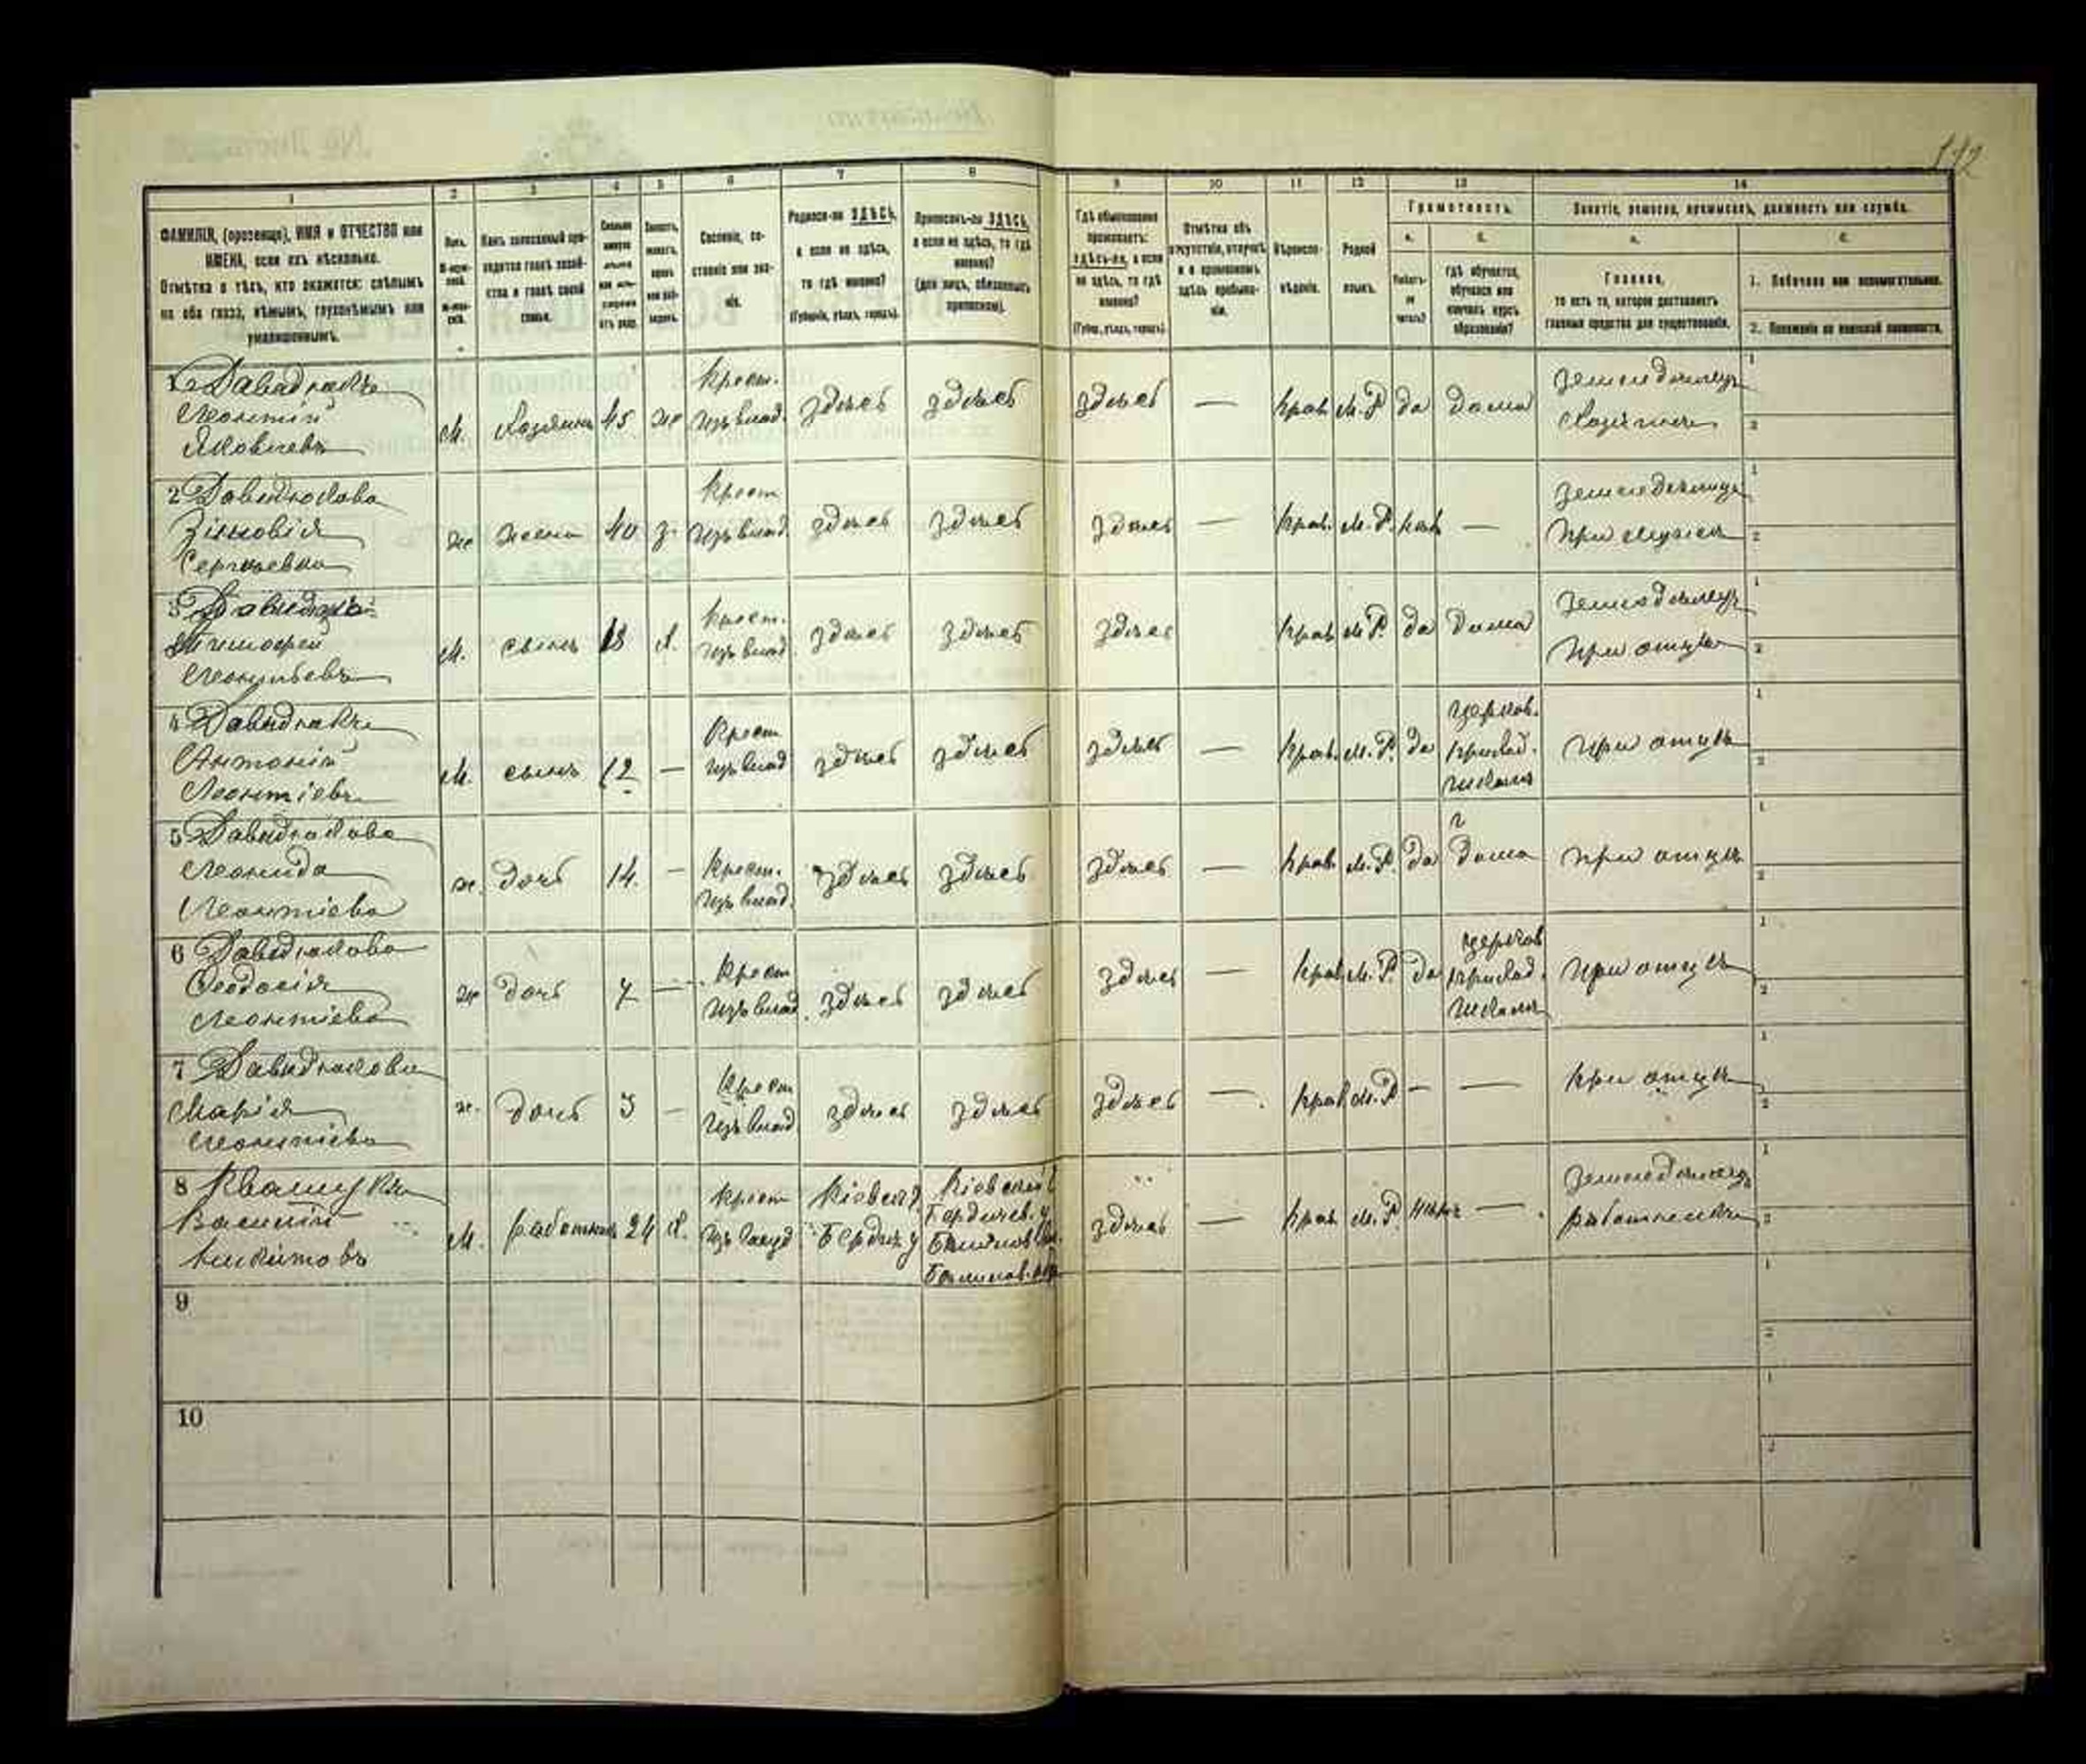 112
1 2 3 4 5 6 7 8 9 10 11 12 13 14
ФАМИЛІЯ, (прозвище), ИМЯ и ОТЧЕСТВО или
ИМЕНА, если ихъ нѣсколько.
Отмѣтка о тѣхъ, кто окажется: слѣпымъ
на оба глаза, нѣмымъ, глухонѣмымъ или
умалишеннымъ.
Полъ.
Какъ записанный при-
ходится главѣ хозяй-
ства и главѣ своей
семьи.
Сословіе, со-
стояніе или зва-
ніе.
Родился-ли ЗДѢСЬ,
а если не здѣсь,
то гдѣ именно?
(Губернія, уѣздъ, городъ).
Приписанъ-ли ЗДѢСЬ,
а если не здѣсь, то гдѣ
именно?
(для лицъ, обязанныхъ
припискою).
Гдѣ обыкновенно
проживаетъ:
здѣсь-ли, а если
не здѣсь, то гдѣ
именно?
(Губер., уѣздъ, городъ).
Отмѣтка объ
отсутствіи, отлучкѣ
и о временномъ
здѣсь пребыва-
ніи.
Вѣроиспо-
вѣданіе.
Родной
языкъ.
Грамотность.
а. б.
Умѣетъ-
ли
читать?
гдѣ обучается,
обучался или
кончилъ курсъ
образованія?
Занятіе, ремесло, промыселъ, должность или служба.
а. б.
Главное,
то есть то, которое доставляетъ
главныя средства для существованія.
1. Побочное или вспомогательное.
2. Положеніе по воинской повинности.
1 Давидюкъ
Леонтій
Яковлевъ
М. хозяинъ 45 же
крест.
изъ влад.
здѣсь здѣсь здѣсь — прав. М.Р. да дома
земледѣлецъ
хозяинъ
2 Давидюкова
Зіновія
Сергѣевна
же жена 40 з.
крест
изъ влад.
здѣсь здѣсь здѣсь — прав. М.Р. —
земледѣлица
при мужѣ
3
Тимофей
Леонтьевъ
М. сынъ 18 х.
крест.
изъ влад.
здѣсь здѣсь здѣсь прав М.Р. да дома
земледѣлецъ
при отцѣ
4 Давидюкъ
Антоній
Леонтіевъ
М. сынъ 12 —
крест
изъ влад
здѣсь здѣсь здѣсь — прав. М.Р. да
церков.
приход.
школа
при отцѣ
5 Давидюкова
Леонида
Леонтіева
ж. дочь 14. —
крест.
изъ влад.
здѣсь здѣсь здѣсь — прав. М.Р. да дома
при отцѣ
6 Давидюкова
Феодосія
Леонтіева
же дочь 7 —
крест
изъ влад
здѣсь здѣсь здѣсь — прав М.Р. да
церков
приход.
школа
при отцѣ
7 Давидюкова
Марія
Леонтіева
ж. дочь 3 —
крест
изъ влад
здѣсь здѣсь здѣсь — прав М.Р — —
при отцѣ
8 Квашукъ
Василій
Никитовъ
М. работникъ 24 х.
крест
изъ госуд
Кіевской
Бердич у
Кіевской
Бердичев. у
здѣсь — прав М.Р. нѣтъ —
земледѣлецъ
работникъ
9
10